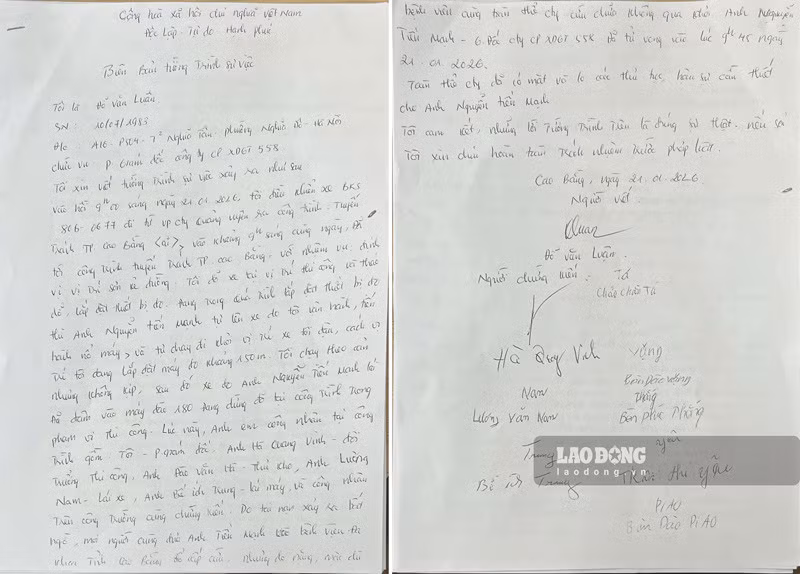 Cộng hòa xã hội chủ nghĩa Việt Nam
Độc lập - Tự do - Hạnh phúc
Biên Bản tường trình sự việc
Tôi là Đỗ Văn Luân
SN: 10/07/1983
Chức vụ: P. Giám đốc công ty CP XDGT 558
Tôi xin viết tường trình sự việc xảy ra như sau
Vào hồi 9h00 sáng ngày 21.01.2026, tôi điều khiển xe BKS
đi từ vp cty Quảng Uyên ra công trình: Tuyến
Tránh TP Cao Bằng vào khoảng sáng cùng ngày,
tôi công trình tuyến tránh TP. Cao Bằng, với nhiệm vụ: định
vị vị trí sửa đường. Tôi đỗ xe tại vị trí thi công và tháo
dỡ, lắp đặt thiết bị đo. Đang trong quá trình lắp đặt thiết bị đo
thì Anh Nguyễn Tiến Mạnh tự lên xe do tôi vận hành, tiến
hành nổ máy và tự chạy đi khỏi vị trí xe tôi đậu, cách vị
trí tôi đang lắp đặt máy đo khoảng 150m. Tôi chạy theo cản
nhưng không kịp, sau đó xe do Anh Nguyễn Tiến Mạnh lái
đã đâm vào máy đào 180 đang dừng đỗ tại công trình trong
phạm vi thi công. Lúc này, Anh em công nhân tại công
trình gồm Tôi - P. giám đốc. Anh Hà Quang Vinh - đội
trưởng thi công, Anh Đào Văn - thủ kho, Anh Lương
Nam - lái xe, Anh Bế ích Trung - lái máy, và công nhân
trên công trường cùng chứng kiến. Do tai nạn xảy ra bất
ngờ, mọi người cùng đưa Anh Tiến Mạnh vào bệnh viện Đa
khoa Tỉnh Cao Bằng để cấp cứu. Nhưng do nặng, mặc dù
bệnh viện cùng toàn thể cty cứu chữa không qua khỏi. Anh Nguyễn
Tiến Mạnh - G. Đốc cty CP XDGT 558 đã tử vong vào lúc 9h45 ngày
21.01.2026.
Toàn thể cty đã có mặt và lo các thủ tục, hậu sự cần thiết
cho Anh Nguyễn Tiến Mạnh
Tôi cam kết, những lời tường trình trên là đúng sự thật. nếu sai
Tôi xin chịu hoàn toàn trách nhiệm trước pháp luật.
Cao Bằng, ngày 21.01.2026
Người viết.
Đỗ Văn Luân.
Người chứng kiến. Tá
Chảo Chấn Tá
Vinh
Nam
Lương Văn Nam
Bồn Phúc Thắng
Trung
Bế ích Trung
Yêu
Trần Thị Yêu
PIAO
PIAO
LAO ĐỘNG
laodong.vn